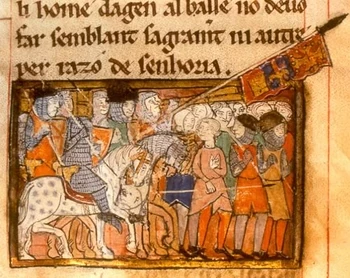 li home dagen al baile no deuo
far semblant sagrament ni autre
per razo de senhoria.